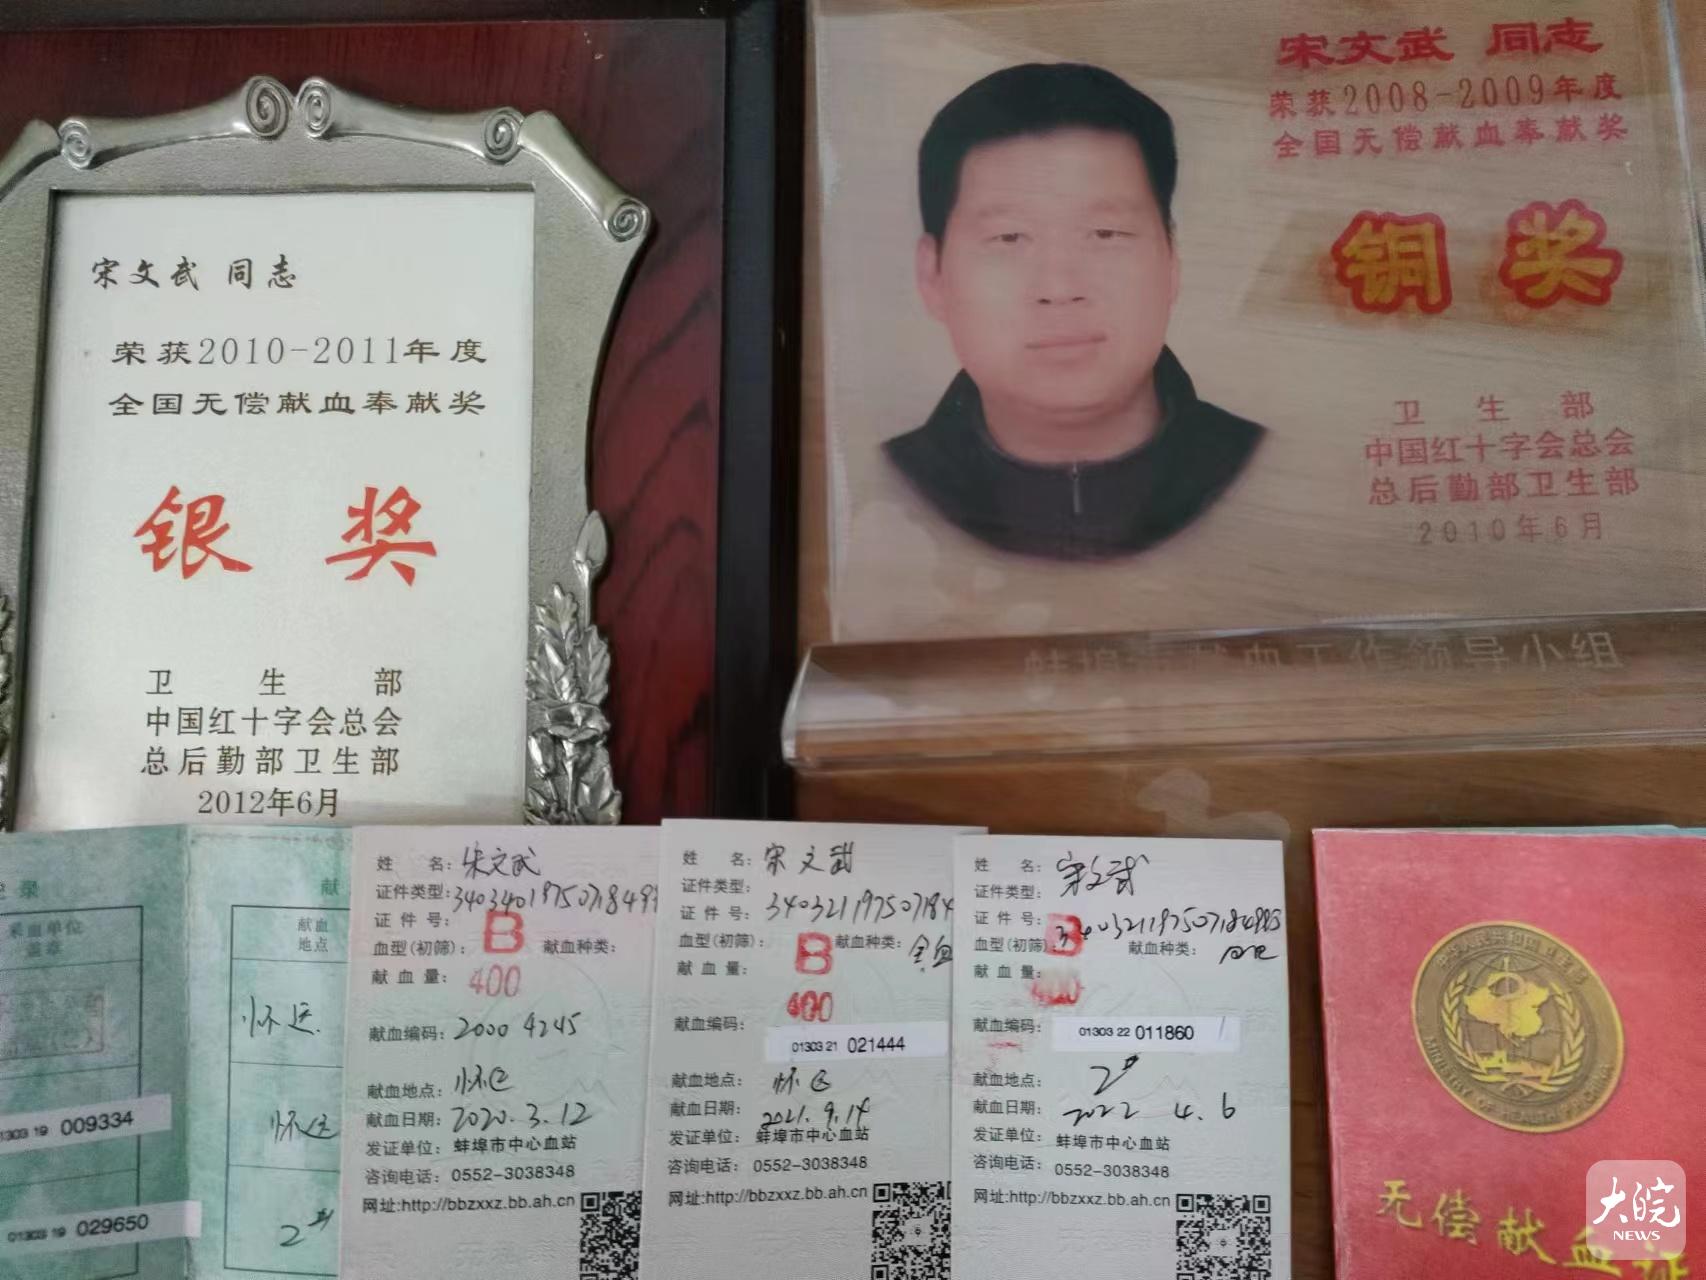 宋文武 同志
荣获2010-2011年度
全国无偿献血奉献奖
银 奖
卫 生 部
中国红十字会总会
总后勤部卫生部
2012年6月
宋文武 同志
荣获2008-2009年度
全国无偿献血奉献奖
铜 奖
卫 生 部
中国红十字会总会
总后勤部卫生部
2010年6月
献血工作领导小组
录
采血单位
盖章
01303 19 009334
01303 19 029650
献
献血
地点
怀远
怀远
2#
姓 名: 宋文武
证件类型:
证 件 号:
血型(初筛): B 献血种类:
献 血 量: 400
献血编码: 2000 4245
献血地点: 怀远
献血日期: 2020.3.12
发证单位: 蚌埠市中心血站
咨询电话: 0552-3038348
网址:http://bbzxxz.bb.ah.cn
姓 名: 宋文武
证件类型:
证 件 号: 340321197507184
血型(初筛): B 献血种类: 全血
献 血 量: 400
献血编码: 01303 21 021444
献血地点: 怀远
献血日期: 2021.9.14
发证单位: 蚌埠市中心血站
咨询电话: 0552-3038348
网址:http://bbzxxz.bb.ah.cn
姓 名: 宋文武
证件类型:
证 件 号:
血型(初筛): B 献血种类:
献 血 量: 400
献血编码: 01303 22 011860
献血地点: 2#
献血日期: 2022 4.6
发证单位: 蚌埠市中心血站
咨询电话: 0552-3038348
网址:http://bbzxxz.bb.ah.cn
中华人民共和国卫生部
MINISTRY OF HEALTH P.R.CHINA
无偿献血证
大皖
NEWS